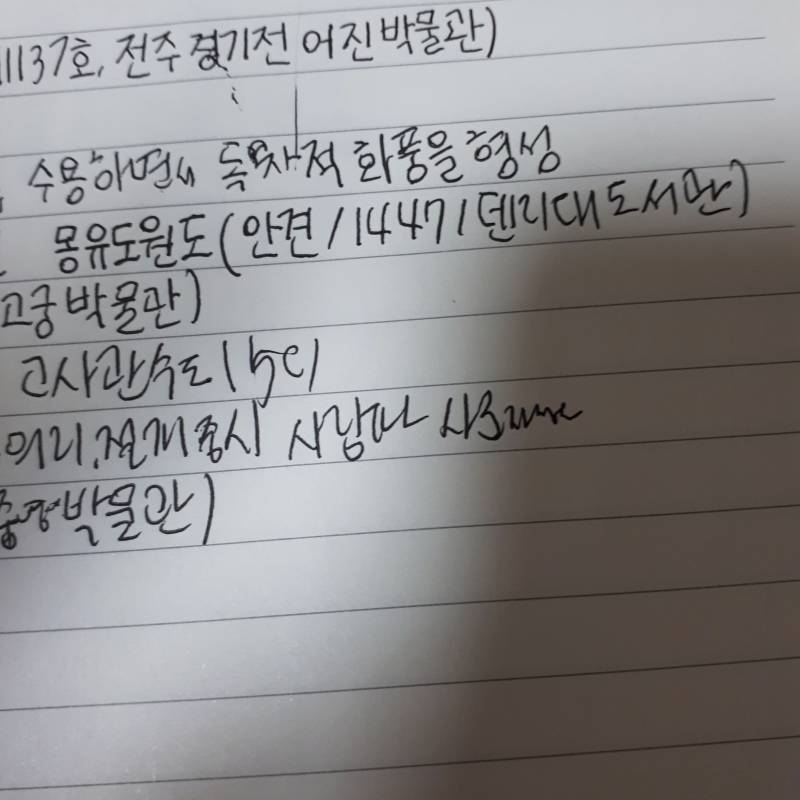 1137호, 전주 경기전 어진박물관)
수용하면서 독자적 화풍을 형성
몽유도원도(안견/1447/덴리대도서관)
고궁박물관)
고사관수도(15C)
의리.절개 중시 사람파
박물관)